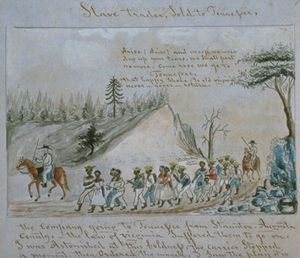 Slave trader, Sold to Tennessee,
Arise! Arise! and weep no more
dry up your tears, we shall part
no more. Come rose we go to
Tennessee,
that happy shore, to old virginia
never - never - return.
the Company going to Tennessee from Staunton, Augusta
County, - the law of virginia Suffered them to go on.
I was Astonished at this boldness, the carrier Stopped
a moment, then Ordered the march, I Saw the play it